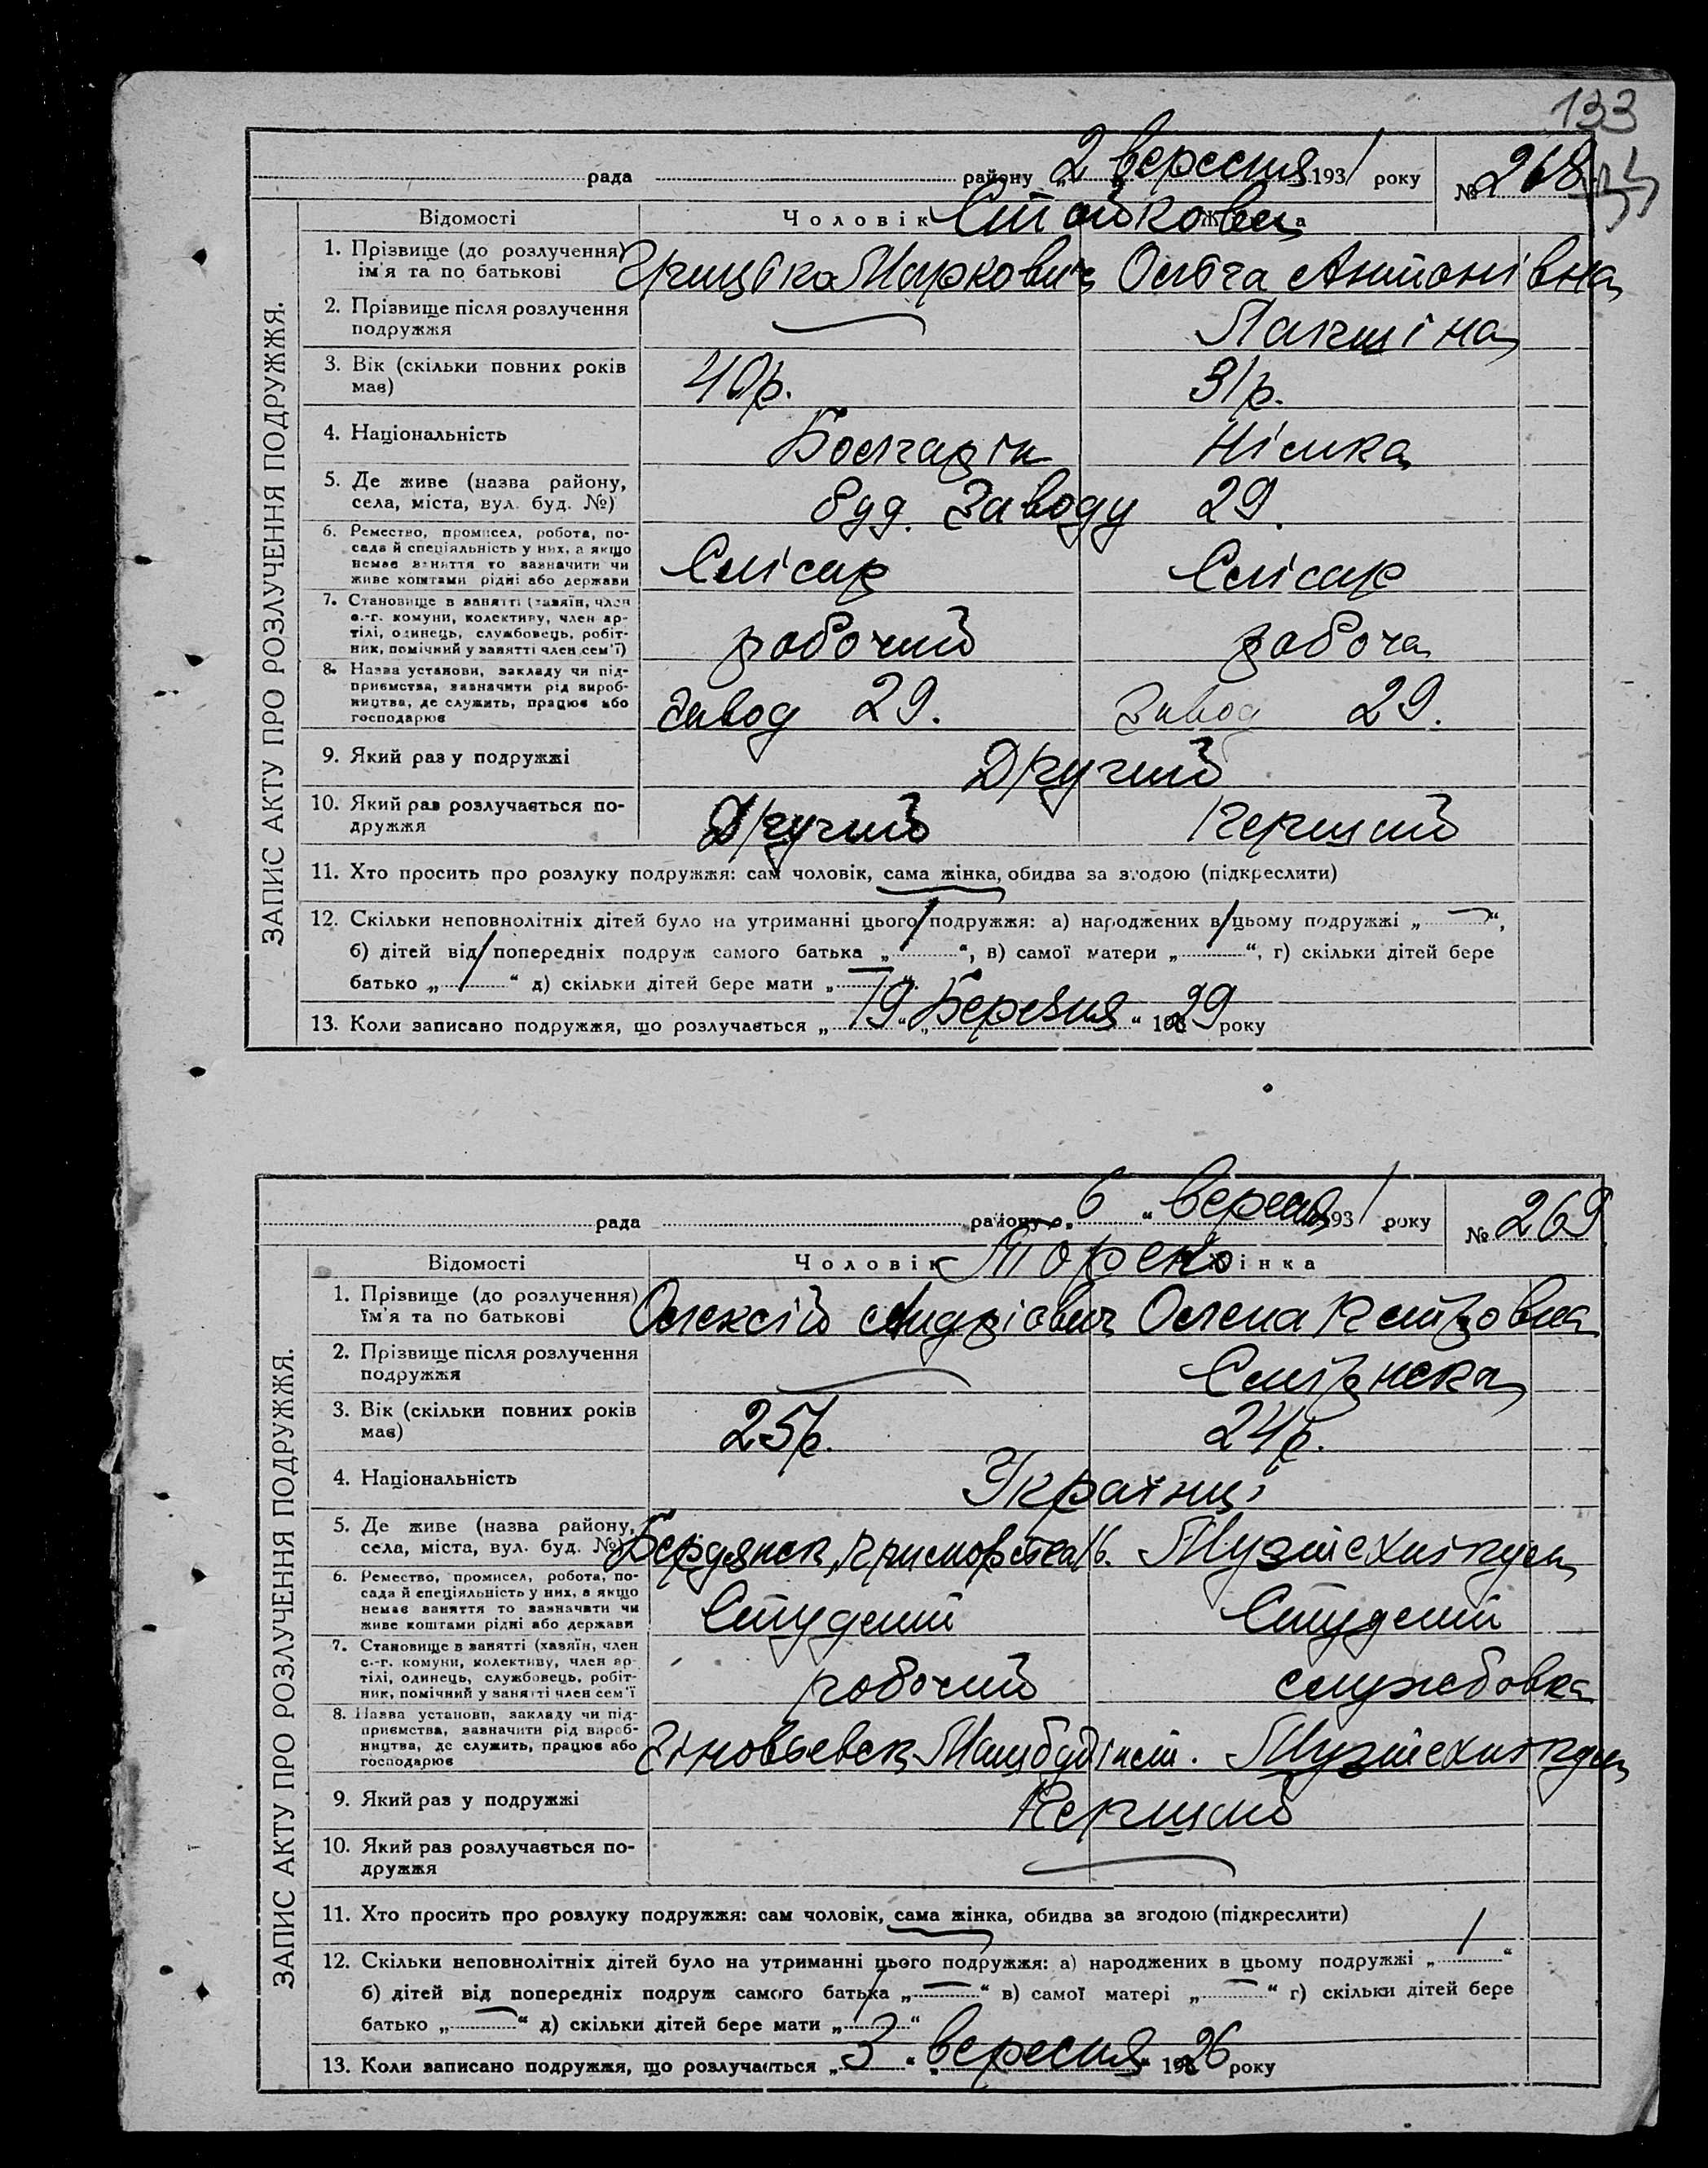 133
рада району „2„ вересня 1931 року № 268
Відомості Чоловік Жінка
Стойкови
ЗАПИС АКТУ ПРО РОЗЛУЧЕННЯ ПОДРУЖЖЯ.
1. Прізвище (до розлучення) Грицько Маркович Ольга Антонівна
ім'я та по батькові
2. Прізвище після розлучення
подружжя
3. Вік (скільки повних років 40р. 31р.
має)
4. Національність Болгарін Німка
5. Де живе (назва району, буд. Заводу 29.
села, міста, вул. буд. №)
6. Ремество, промисел, робота, по-
сада й спеціяльність у них, а якщо Слісар Слісар
немає заняття то зазначити чи
живе коштами рідні або держави
7. Становище в занятті (хазяїн, член
с.-г. комуни, колективу, член ар-
тілі, одинець, службовець, робіт- робочий робоча
ник, помічний у занятті член сем'ї)
8. Назва установи, закладу чи під-
приємства, зазначити рід вироб-
ництва, де служить, працює або Завод 29. Завод 29.
господарює
9. Який раз у подружжі Другий
10. Який раз розлучається по- Другий Перший
дружжя
11. Хто просить про розлуку подружжя: сам чоловік, сама жінка, обидва за згодою (підкреслити)
12. Скільки неповнолітніх дітей було на утриманні цього подружжя: а) народжених в цьому подружжі „—“,
б) дітей від попередніх подруж самого батька „—“, в) самої матери „—“, г) скільки дітей бере
батько „—“ д) скільки дітей бере мати „—“.
13. Коли записано подружжя, що розлучається „19“ „Березня“ 1929 року
рада району „6“ вересня 1931 року № 269
Відомості Чоловік Жінка
Торень
ЗАПИС АКТУ ПРО РОЗЛУЧЕННЯ ПОДРУЖЖЯ.
1. Прізвище (до розлучення) Олексій Андрієвич Олена Петровна
їм'я та по батькові
2. Прізвище після розлучення
подружжя
3. Вік (скільки повних років 25р. 24р.
має)
4. Національність Українці
5. Де живе (назва району, Бердянск, Приморська 16. Музтехнікум
села, міста, вул. буд. №)
6. Ремество, промисел, робота, по-
сада й спеціяльність у них, а якщо Студент Студент
немає заняття то зазначати чи
живе коштами рідні або держави
7. Становище в занятті (хазяїн, член
с.-г. комуни, колективу, член ар-
тілі, одинець, службовець, робіт- робочий службовка
ник, помічний у занятті член сем'ї
8. Назва установи, закладу чи під-
приємства, зазначити рід вироб-
ництва, де служить, працює або Зіновьевск Машбудінст. Музтехнікум
господарює
9. Який раз у подружжі Перший
10. Який раз розлучається по-
дружжя
11. Хто просить про розлуку подружжя: сам чоловік, сама жінка, обидва за згодою (підкреслити)
12. Скільки неповнолітніх дітей було на утриманні цього подружжя: а) народжених в цьому подружжі „1“
б) дітей від попередніх подруж самого батька „—“ в) самої матері „—“ г) скільки дітей бере
батько „—“ д) скільки дітей бере мати „1“
13. Коли записано подружжя, що розлучається „3“ „вересня“ 1926 року